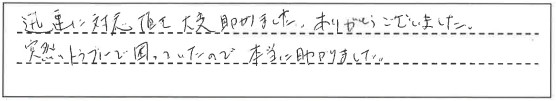 迅速に対応頂き大変助かりました。ありがとうございました。
突然のトラブルで困っていたので本当に助かりました。